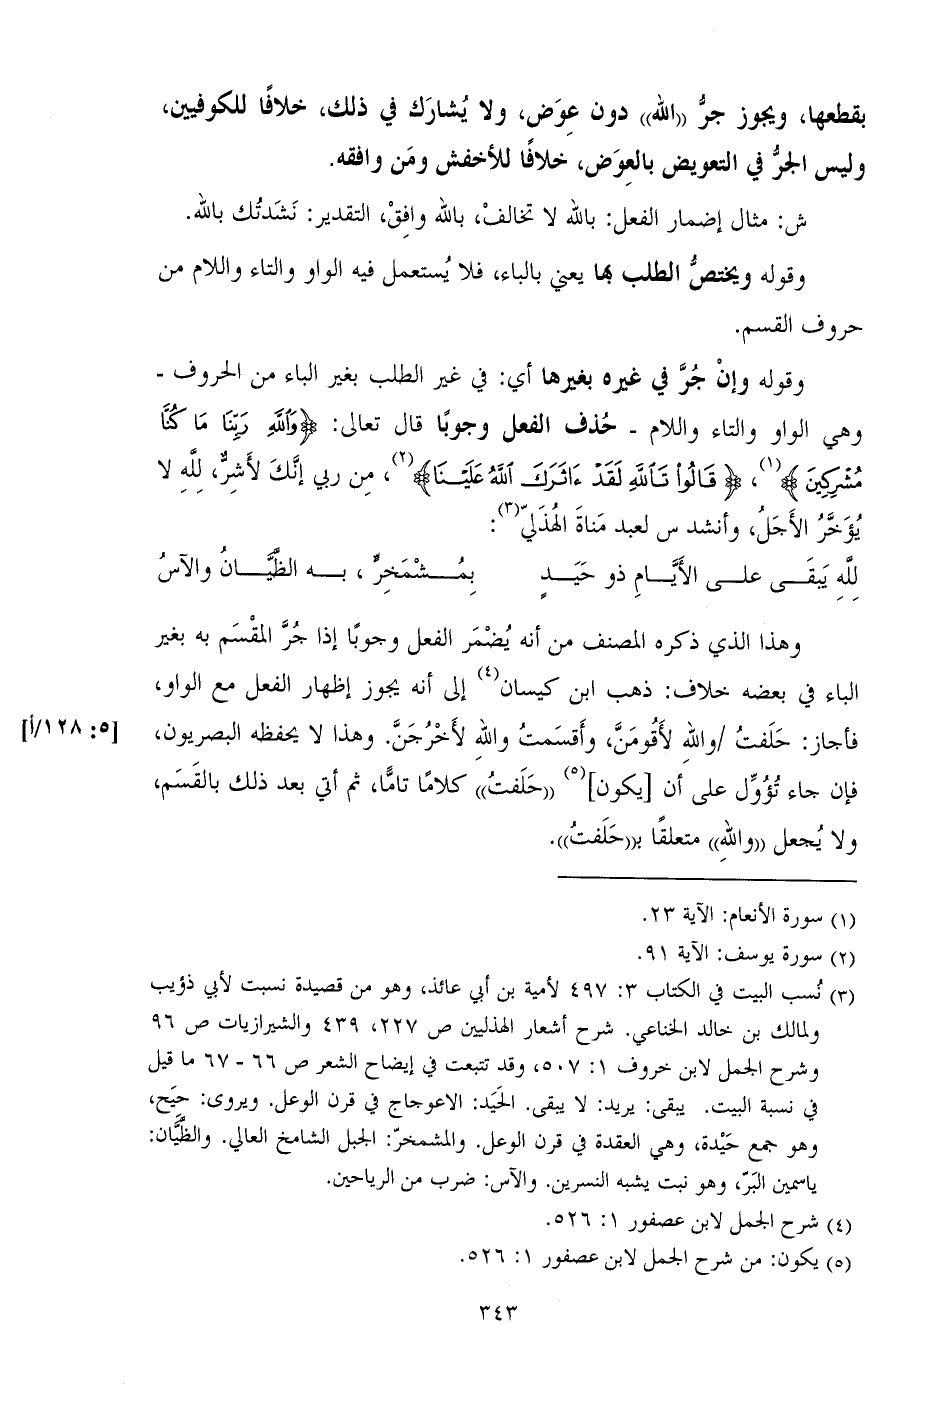 بقطعها، ويجوز جرُّ ((الله)) دون عِوَض، ولا يُشارَك في ذلك، خلافًا للكوفيين،
وليس الجرُّ في التعويض بالعِوَض، خلافًا للأخفش ومَن وافقه.
ش: مثال إضمار الفعل: بالله لا تخالفْ، بالله وافِقْ، التقدير: نَشَدتُك بالله.
وقوله ويختصُّ الطلب بها يعني بالباء، فلا يُستعمل فيه الواو والتاء واللام من
حروف القسم.
وقوله وإنْ جُرَّ في غيره بغيرها أي: في غير الطلب بغير الباء من الحروف -
وهي الواو والتاء واللام - حُذف الفعل وجوبًا قال تعالى: ﴿وَٱللَّهِ رَبِّنَا مَا كُنَّا
مُشْرِكِينَ﴾(١)، ﴿قَالُواْ تَٱللَّهِ لَقَدْ ءَاثَرَكَ ٱللَّهُ عَلَيْنَا﴾(٢)، من ربي إنَّكَ لأَشِرٌ، للَّهِ لا
يُؤَخَّرُ الأَجَلُ، وأنشد س لعبد مَناةَ الهُذَليّ(٣):
للَّهِ يَبقَى على الأَيَّامِ ذو حَيَدٍ بِمُشْمَخِرٍّ، به الظَّيَّانُ والآسُ
وهذا الذي ذكره المصنف من أنه يُضْمَر الفعل وجوبًا إذا جُرَّ المقْسَم به بغير
الباء في بعضه خلاف: ذهب ابن كيسان(٤) إلى أنه يجوز إظهار الفعل مع الواو،
فأجاز: حَلَفتُ /واللهِ لأَقُومَنَّ، وأَقسَمتُ واللهِ لأَخْرُجَنَّ. وهذا لا يحفظه البصريون، [٥: ١٢٨/أ]
فإن جاء تُؤُوِّل على أن [يكون](٥) ((حَلَفتُ)) كلامًا تامًّا، ثم أتي بعد ذلك بالقَسَم،
ولا يُجعل ((واللهِ)) متعلقًا بـ((حَلَفتُ)).
(١) سورة الأنعام: الآية ٢٣.
(٢) سورة يوسف: الآية ٩١.
(٣) نُسب البيت في الكتاب ٣: ٤٩٧ لأمية بن أبي عائذ، وهو من قصيدة نسبت لأبي ذؤيب
ولمالك بن خالد الخناعي. شرح أشعار الهذليين ص ٢٢٧، ٤٣٩ والشيرازيات ص ٩٦
وشرح الجمل لابن خروف ١: ٥٠٧، وقد تتبعت في إيضاح الشعر ص ٦٦ - ٦٧ ما قيل
في نسبة البيت. يبقى: يريد: لا يبقى. الحَيَد: الاعوجاج في قرن الوعل. ويروى: حِيَح،
وهو جمع حَيْدة، وهي العقدة في قرن الوعل. والمشمخرّ: الجبل الشامخ العالي. والظَّيَّان:
ياسمين البَرّ، وهو نبت يشبه النسرين. والآس: ضرب من الرياحين.
(٤) شرح الجمل لابن عصفور ١: ٥٢٦.
(٥) يكون: من شرح الجمل لابن عصفور ١: ٥٢٦.
٣٤٣